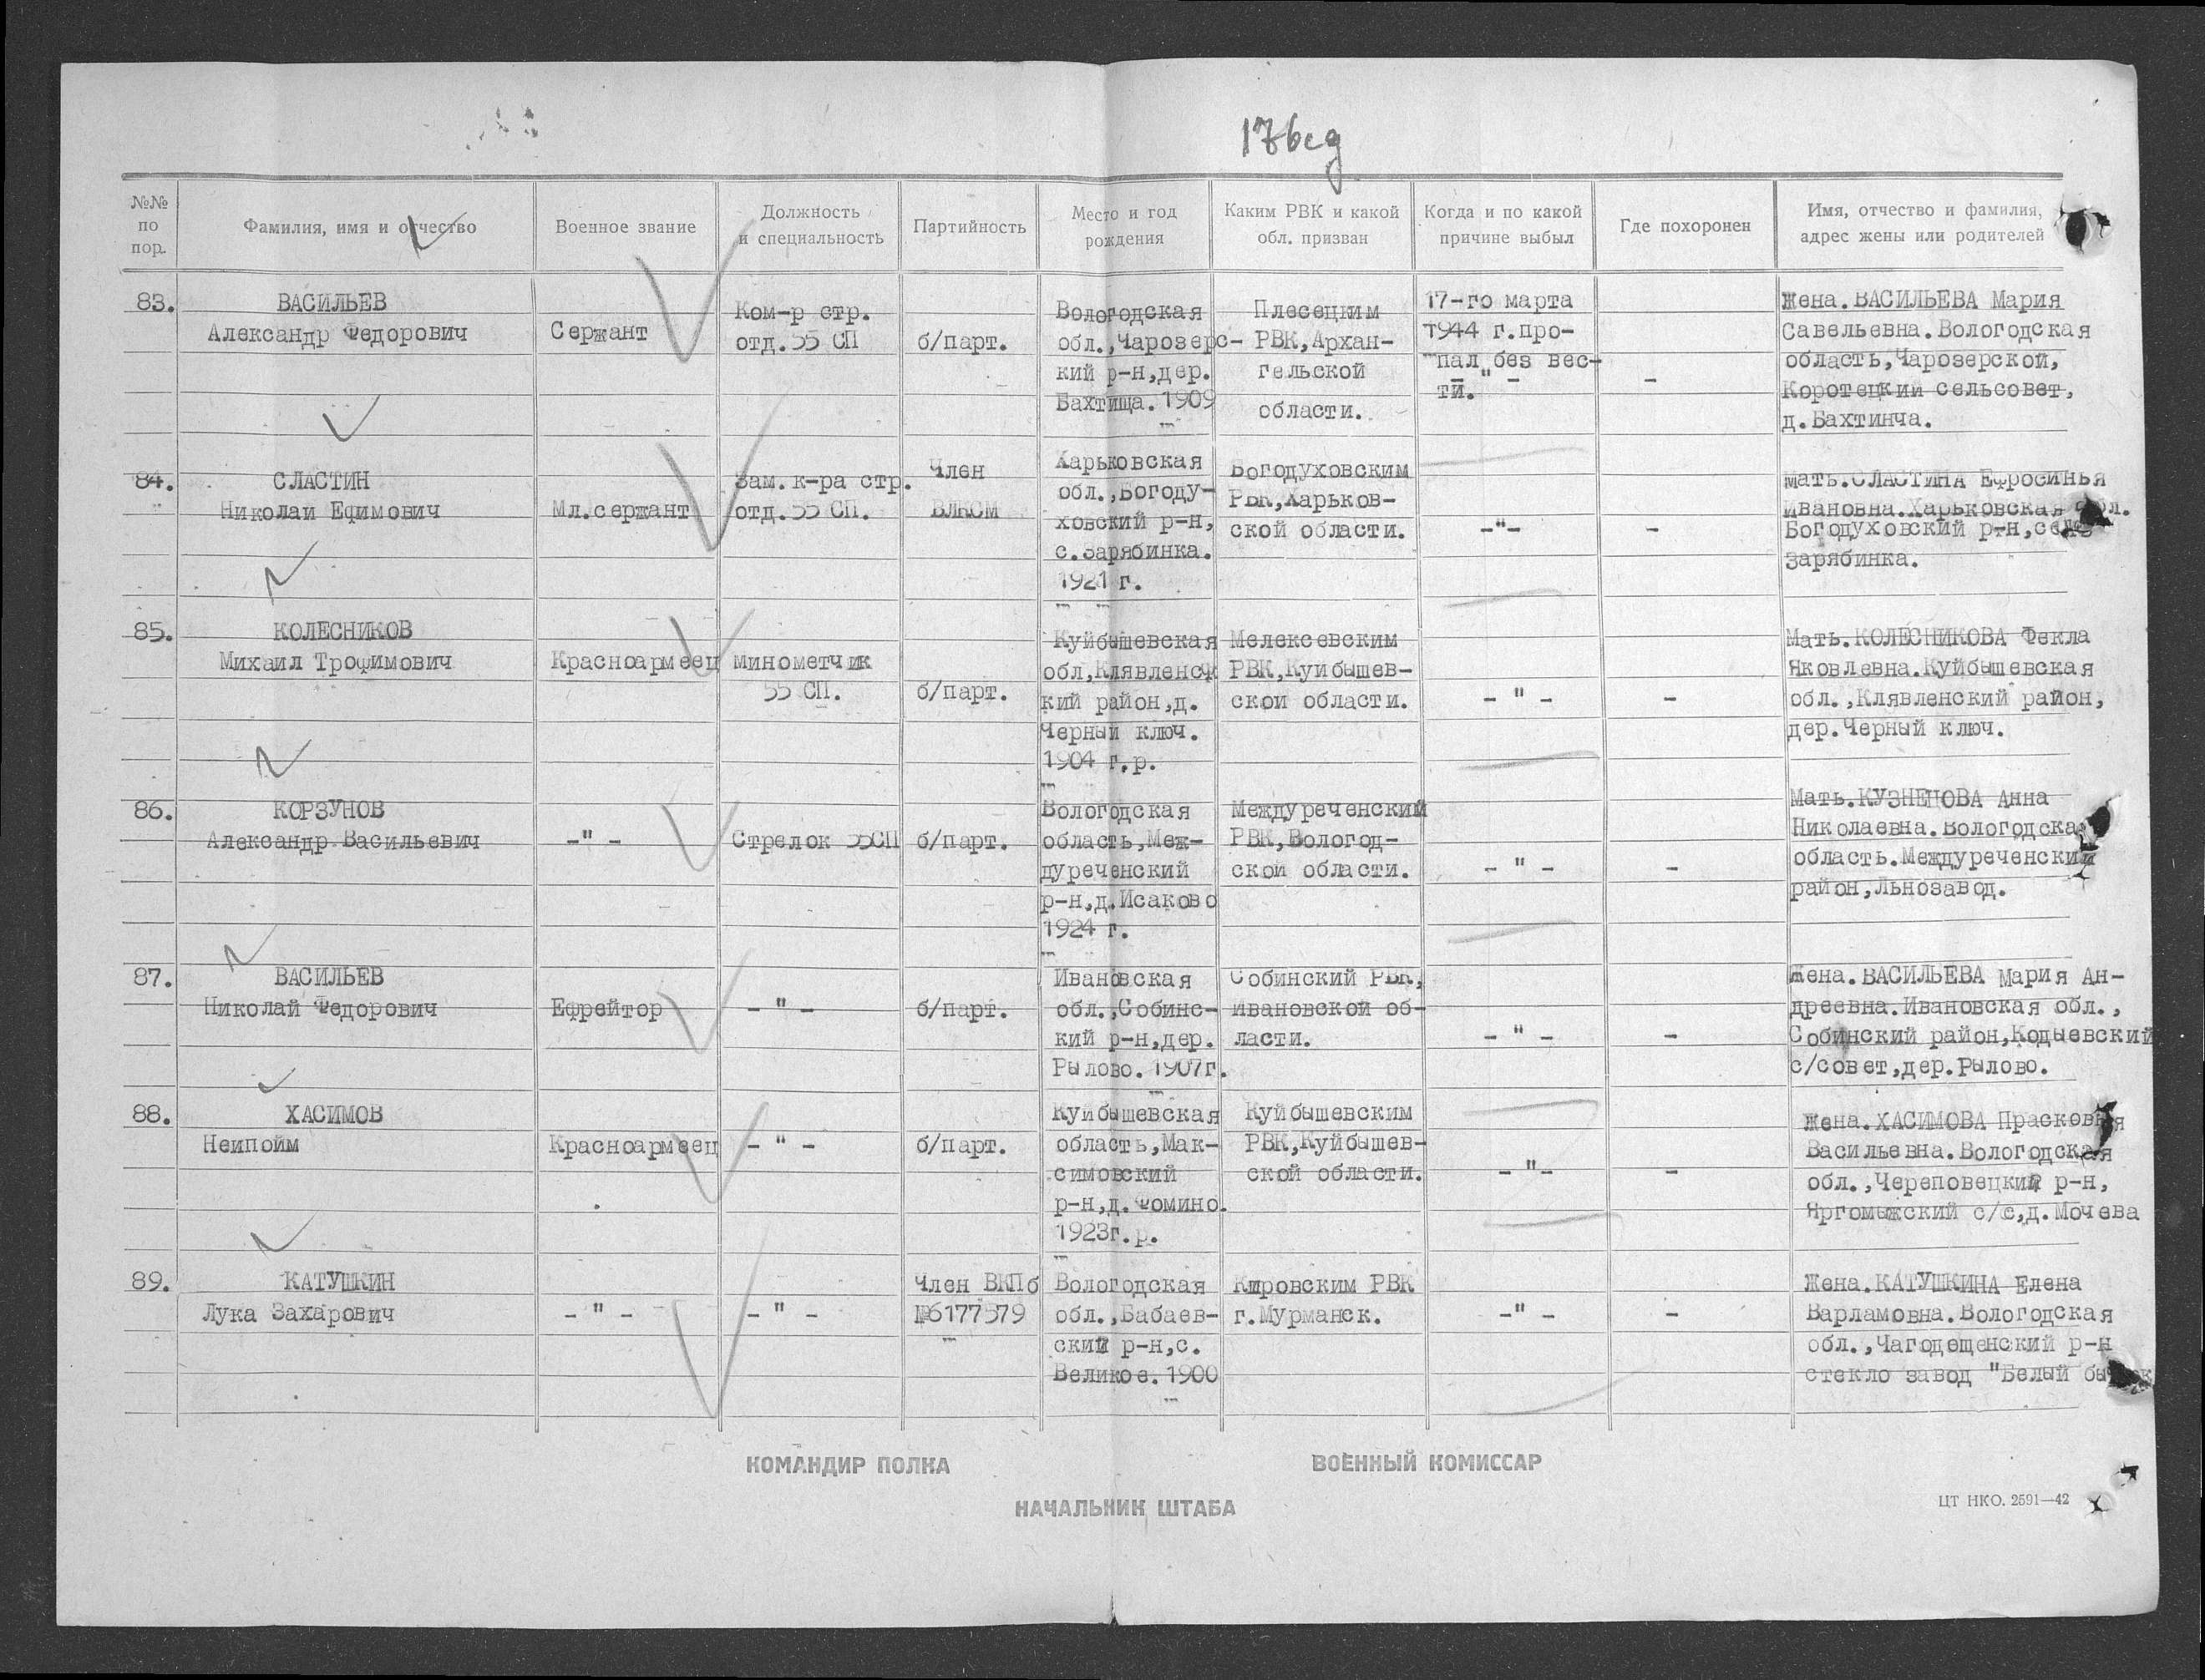 176сд
№№ по пор.
Фамилия, имя и отчество
Военное звание
Должность и специальность
Партийность
Место и год рождения
Каким РВК и какой обл. призван
Когда и по какой причине выбыл
Где похоронен
Имя, отчество и фамилия, адрес жены или родителей
83.
ВАСИЛЬЕВ
Александр Федорович
Сержант
Ком-р стр.
отд.55 СП
б/парт.
Вологодская
обл.,Чарозерс-
кий р-н,дер.
Бахтища. 1909
Плесецким
РВК,Архан-
гельской
области.
17-го марта
1944 г.про-
пал без вес-
ти. - " -
-
Жена.ВАСИЛЬЕВА Мария
Савельевна.Вологодская
область,Чарозерской,
Коротецкий сельсовет,
д.Бахтинча.
84.
СЛАСТИН
Николай Ефимович
Мл.сержант
Зам.к-ра стр.
отд.55 СП.
Член
ВЛКСМ
Харьковская
обл.,Богоду-
ховский р-н,
с.Зарябинка.
1921 г.
Богодуховским
РВК,Харьков-
ской области.
-"-
-
Мать.СЛАСТИНА Ефросинья
Ивановна.Харьковская обл.
Богодуховский р-н,село
Зарябинка.
85.
КОЛЕСНИКОВ
Михаил Трофимович
Красноармеец
минометчик
55 СП.
б/парт.
Куйбышевская
обл,Клявленск
кий район,д.
Черный ключ.
1904 г.р.
Мелексевским
РВК,Куйбышев-
ской области.
- " -
-
Мать.КОЛЕСНИКОВА Фекла
Яковлевна.Куйбышевская
обл.,Клявленский район,
дер.Черный ключ.
86.
КОРЗУНОВ
Александр Васильевич
-" -
Стрелок 55СП
б/парт.
Вологодская
область,Меж-
дуреченский
р-н,д.Исаково
1924 г.
Междуреченский
РВК,Вологод-
ской области.
- " -
-
Мать.КУЗНЕЦОВА Анна
Николаевна.Вологодская
область.Междуреченский
район,Льнозавод.
87.
ВАСИЛЬЕВ
Николай Федорович
Ефрейтор
- " -
б/парт.
Ивановская
обл.,Собинс-
кий р-н,дер.
Рылово. 1907г.
Собинский РВК,
Ивановской об-
ласти.
- " -
-
Жена.ВАСИЛЬЕВА Мария Ан-
дреевна.Ивановская обл.,
Собинский район,Кодыевский
с/совет,дер.Рылово.
88.
ХАСИМОВ
Неипойм
Красноармеец
- " -
б/парт.
Куйбышевская
область,Мак-
симовский
р-н,д.Фомино.
1923г.р.
Куйбышевским
РВК,Куйбышев-
ской области.
- "-
-
Жена.ХАСИМОВА Прасковья
Васильевна.Вологодская
обл.,Череповецкий р-н,
Яргомыжский с/с,д.Мочева
89.
КАТУШКИН
Лука Захарович
- " -
- " -
Член ВКПб
№6177579
Вологодская
обл.,Бабаев-
ский р-н,с.
Великое. 1900
Кировским РВК
г.Мурманск.
-" -
-
Жена.КАТУШКИНА Елена
Варламовна.Вологодская
обл.,Чагодещенский р-н
стекло завод "Белый бычок
КОМАНДИР ПОЛКА
ВОЕННЫЙ КОМИССАР
НАЧАЛЬНИК ШТАБА
ЦТ НКО. 2591—42